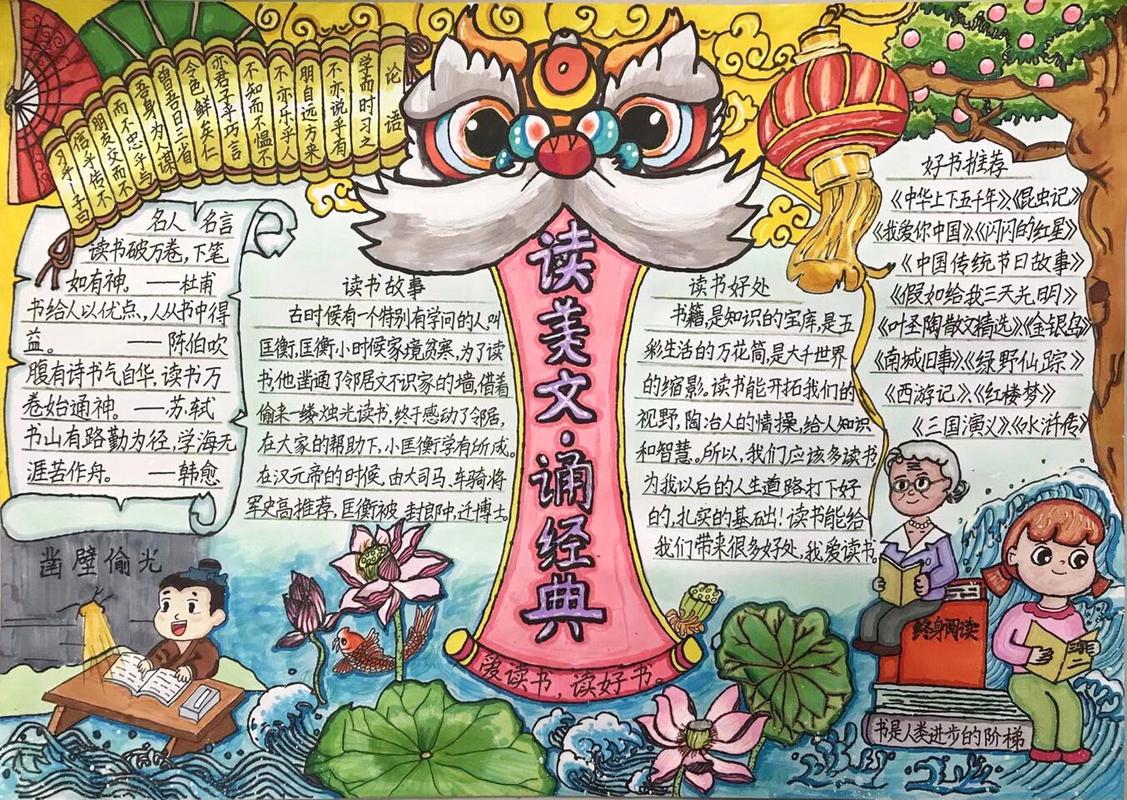 论语
学而时习之
不亦说乎有
朋自远方来
不亦乐乎人
不知而不愠不
亦君子乎巧言
令色鲜矣仁
曾吾日三省
吾身为人谋
而不忠乎与
朋友交而不
信乎传不
习乎子曰
名人名言
读书破万卷,下笔
如有神。——杜甫
书给人以优点,人从书中得
益。——陈伯吹
腹有诗书气自华,读书万
卷始通神。——苏轼
书山有路勤为径,学海无
涯苦作舟。——韩愈
凿壁偷光
读书故事
古时候有一个特别有学问的人,叫
匡衡,匡衡小时候家境贫寒,为了读
书,他凿通了邻居文不识家的墙,借着
偷来一缕烛光读书,终于感动了邻居,
在大家的帮助下,小匡衡学有所成。
在汉元帝的时候,由大司马、车骑将
军史高推荐,匡衡被封郎中,迁博士。
读美文·诵经典
爱读书,读好书。
读书好处
书籍,是知识的宝库,是五
彩生活的万花筒,是大千世界
的缩影。读书能开拓我们的
视野,陶冶人的情操,给人知识
和智慧。所以,我们应该多读书
为我以后的人生道路打下好
的,扎实的基础!读书能给
我们带来很多好处,我爱读书。
好书推荐
《中华上下五千年》《昆虫记》
《我爱你中国》《闪闪的红星》
《中国传统节日故事》
《假如给我三天光明》
《叶圣陶散文精选》《金银岛》
《南城旧事》《绿野仙踪》
《西游记》《红楼梦》
《三国演义》《水浒传》
终身阅读
书是人类进步的阶梯